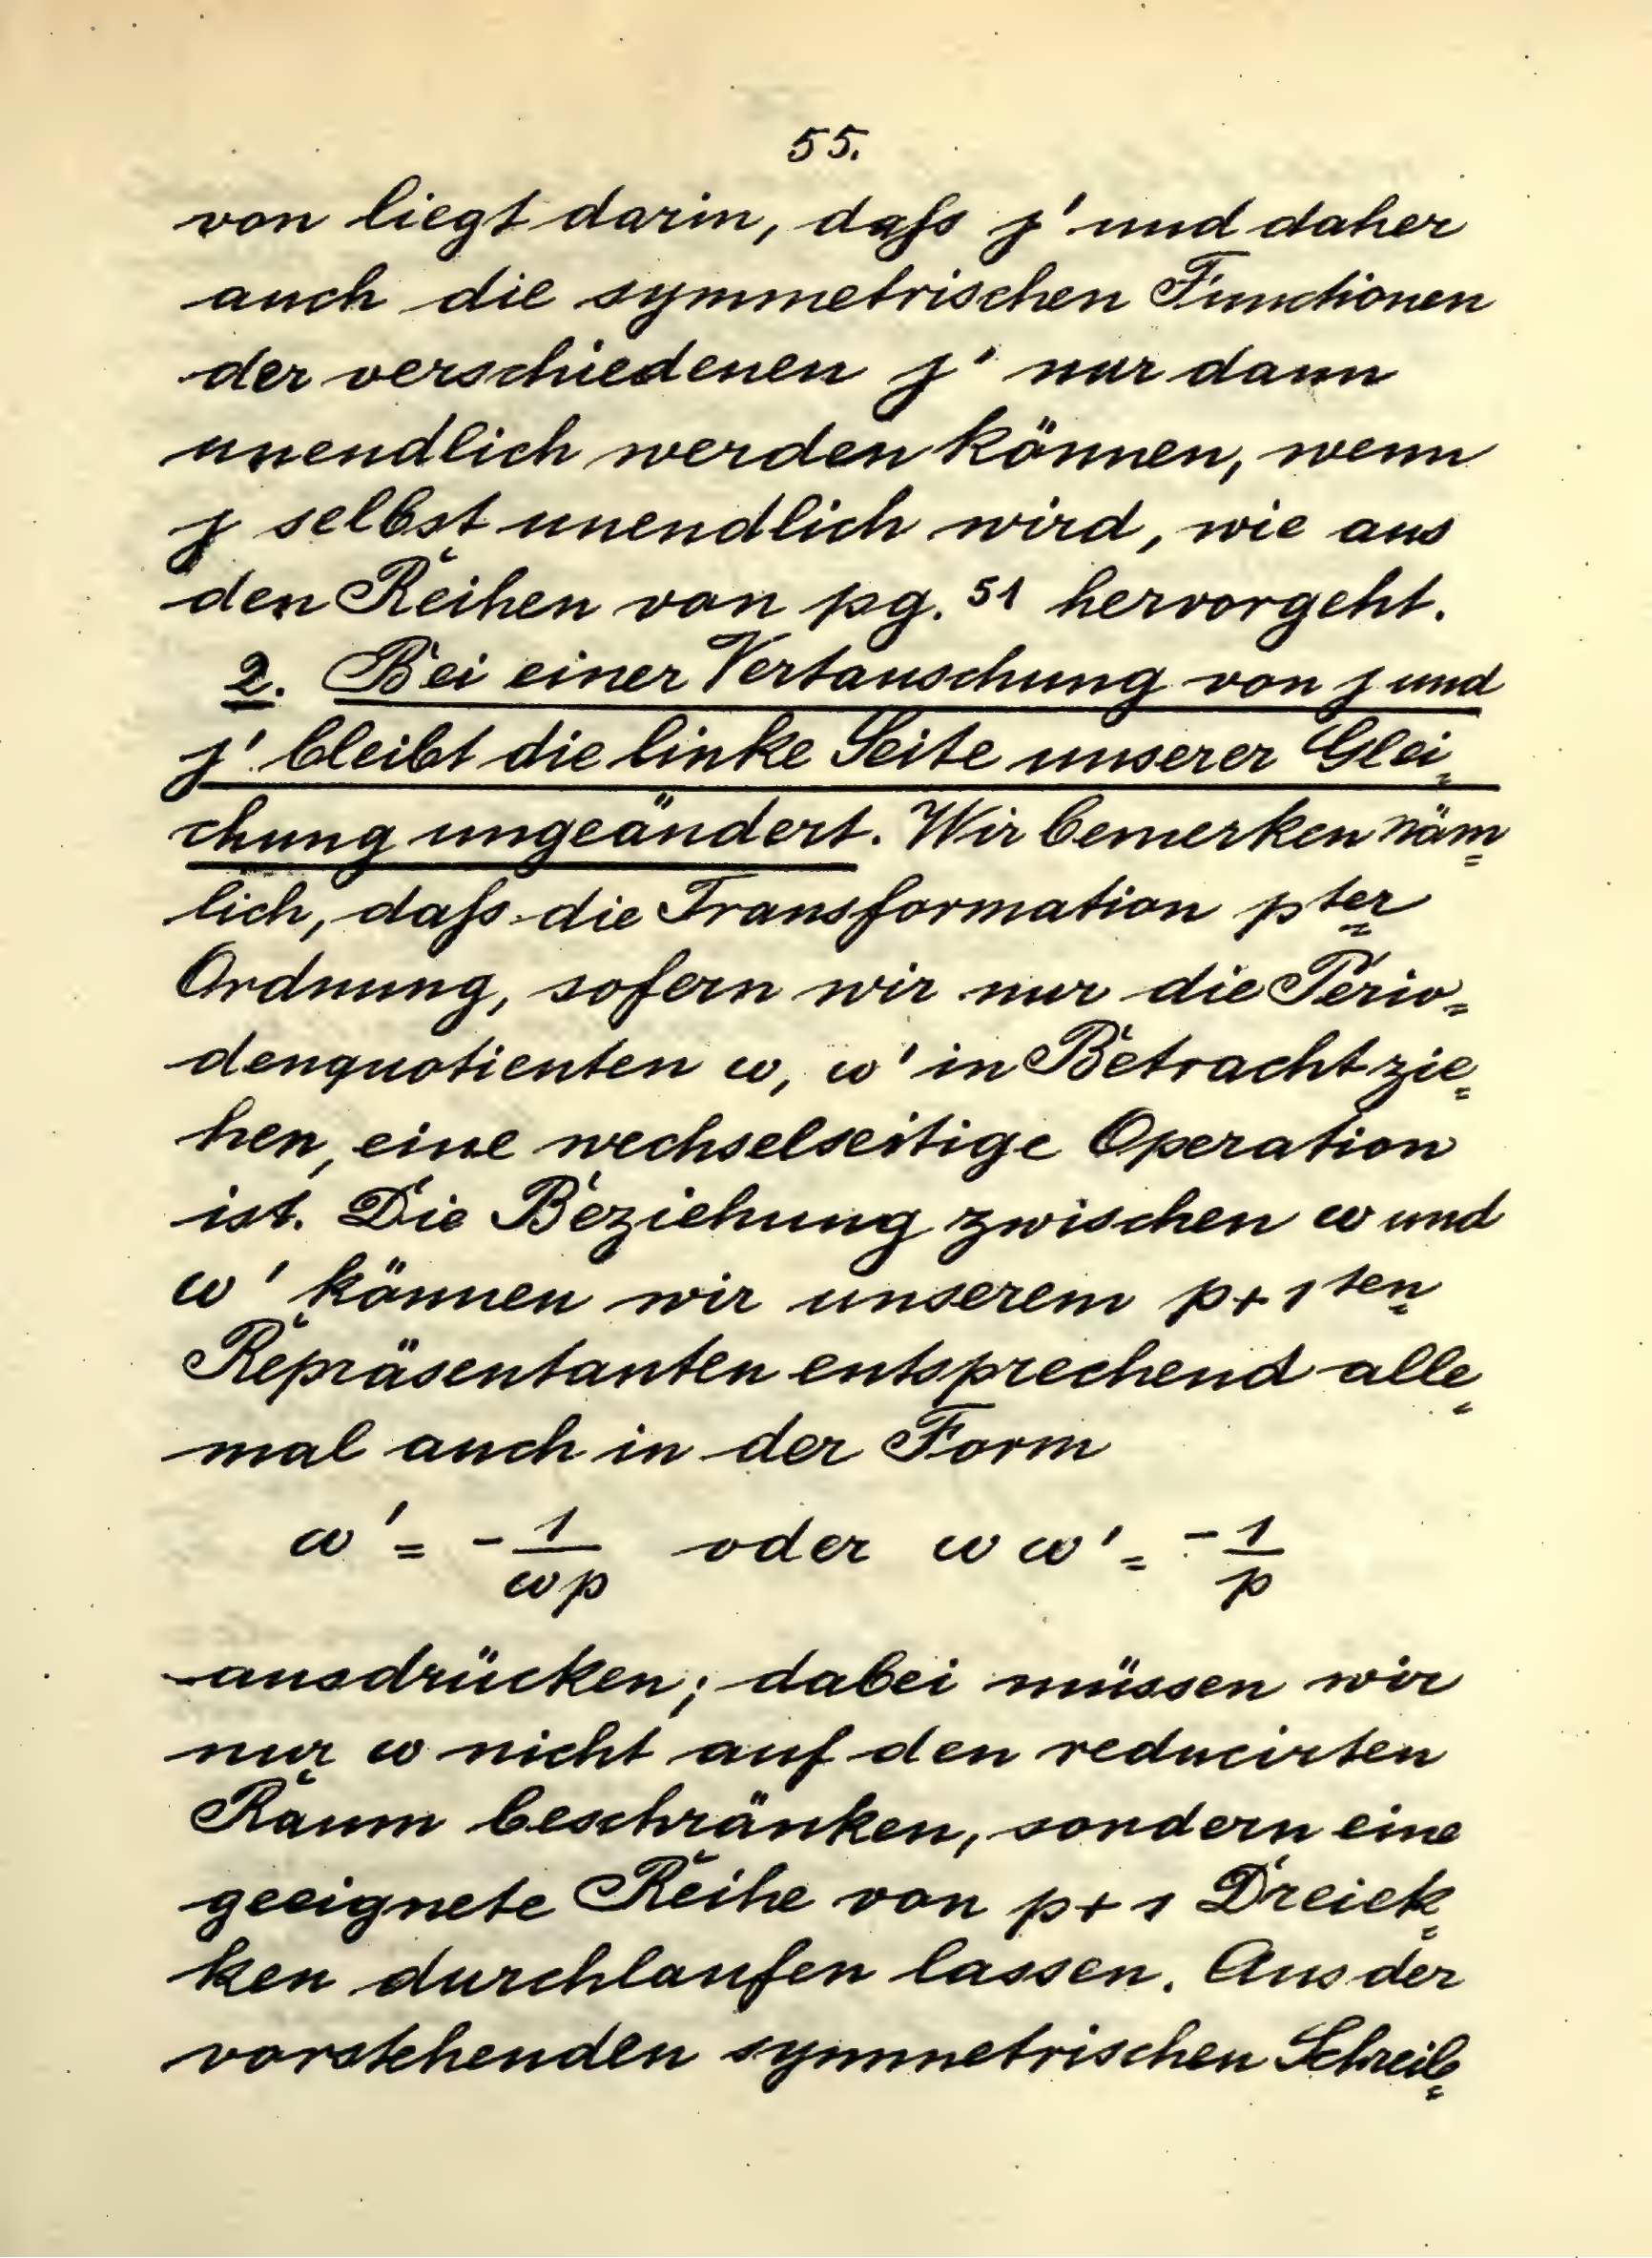 55.
von liegt darin, daſs j' und daher
auch die symmetrischen Functionen
der verschiedenen j' nur dann
unendlich werden können, wenn
j selbst unendlich wird, wie aus
den Reihen von pg. 51 hervorgeht.
2. Bei einer Vertauschung von j und
j' bleibt die linke Seite unserer Glei=
chung ungeändert. Wir bemerken näm=
lich, daſs die Transformation pter
Ordnung, sofern wir nur die Perio=
denquotienten ω, ω' in Betracht zie=
hen, eine wechselseitige Operation
ist. Die Beziehung zwischen ω und
ω' können wir unserem p+1ten
Repräsentanten entsprechend alle=
mal auch in der Form
ω' = -1/ωp oder ωω' = -1/p
ausdrücken; dabei müssen wir
nur ω nicht auf den reducirten
Raum beschränken, sondern eine
geeignete Reihe von p+1 Dreiek=
ken durchlaufen lassen. Aus der
vorstehenden symmetrischen Schreib=